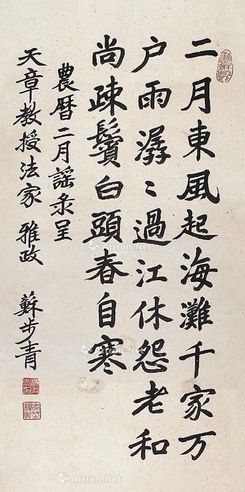 二月東風起海灘千家万
户雨潺〻過江休怨老和
尚疎鬢白頭春自寒
農曆二月謡录呈
天章教授法家 雅政
蘇步青
Artron.Net